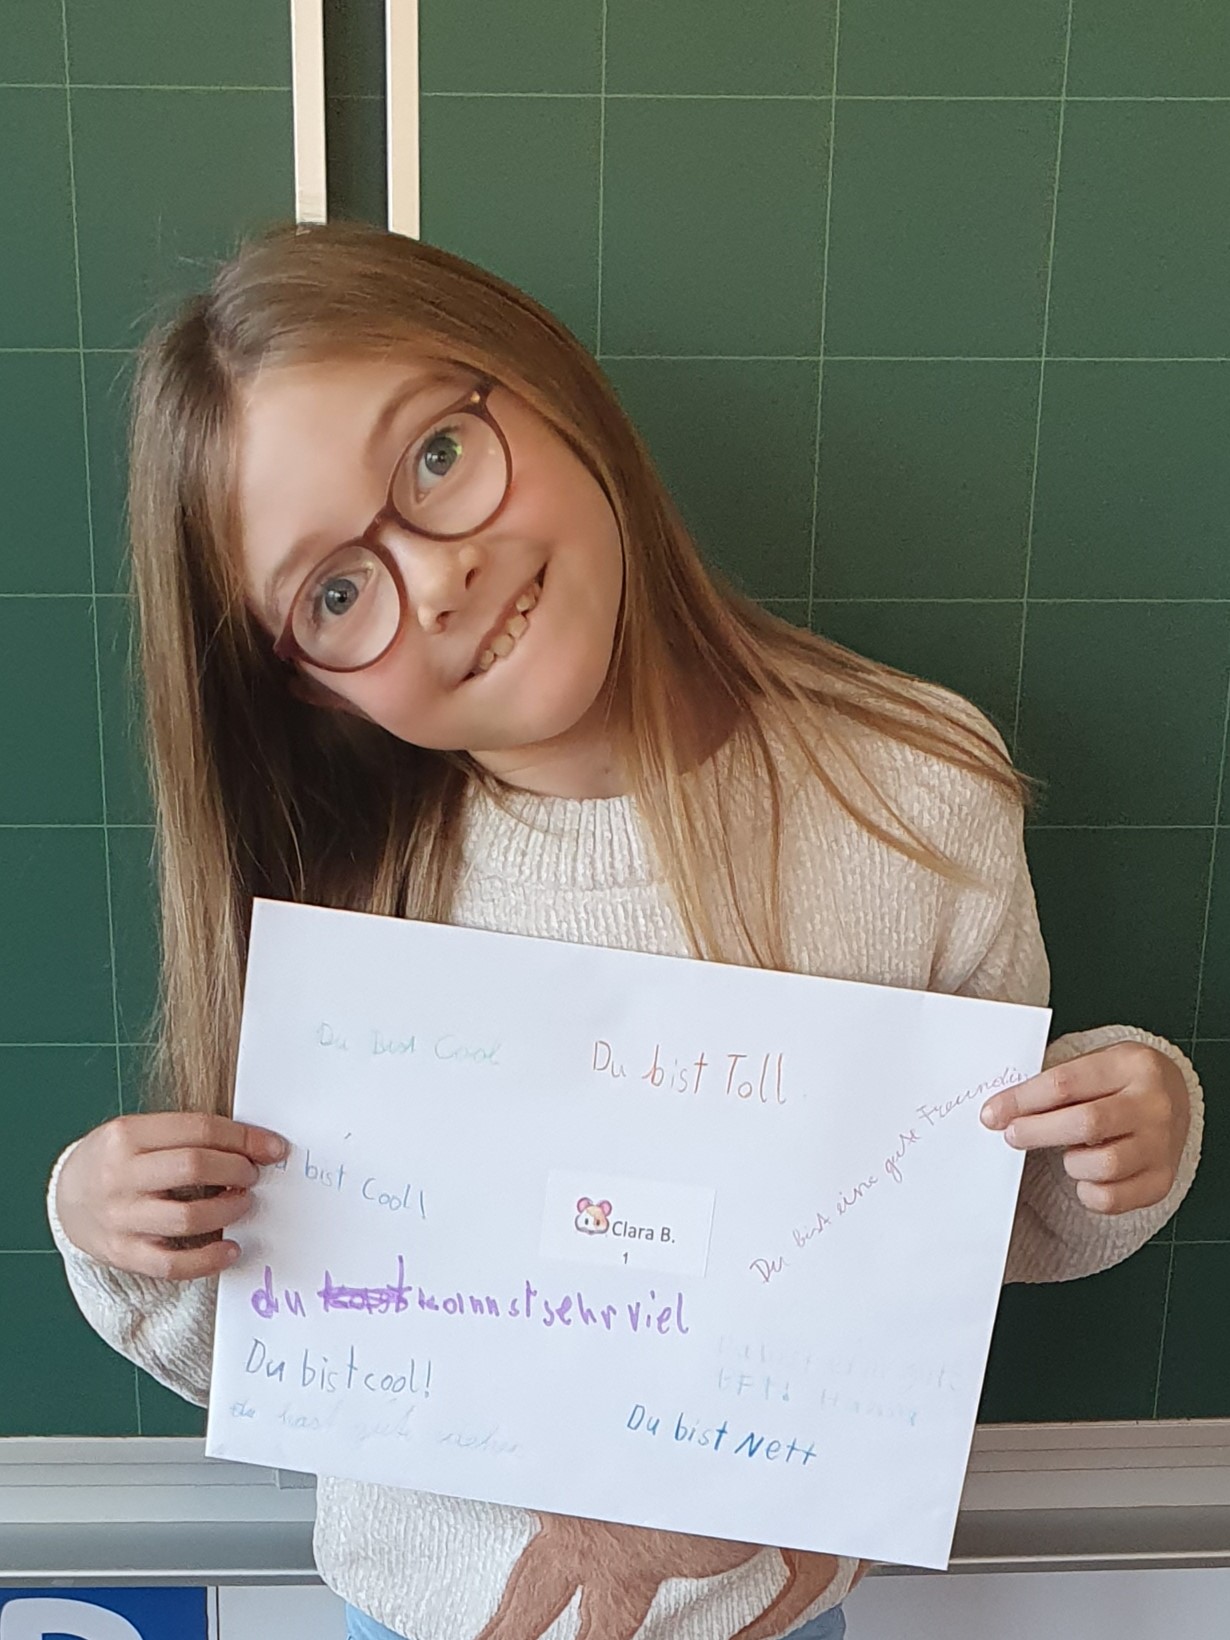 Du Bist Cool
Du bist Toll
bist Cool!
Du bist eine gute Freundin
Clara B.
1
du kannst sehr viel
Du bist cool!
du hast gute
Du bist Nett